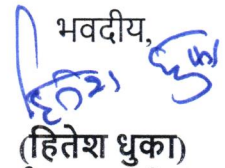 भवदीय,
हितेश धुका
(हितेश धुका)